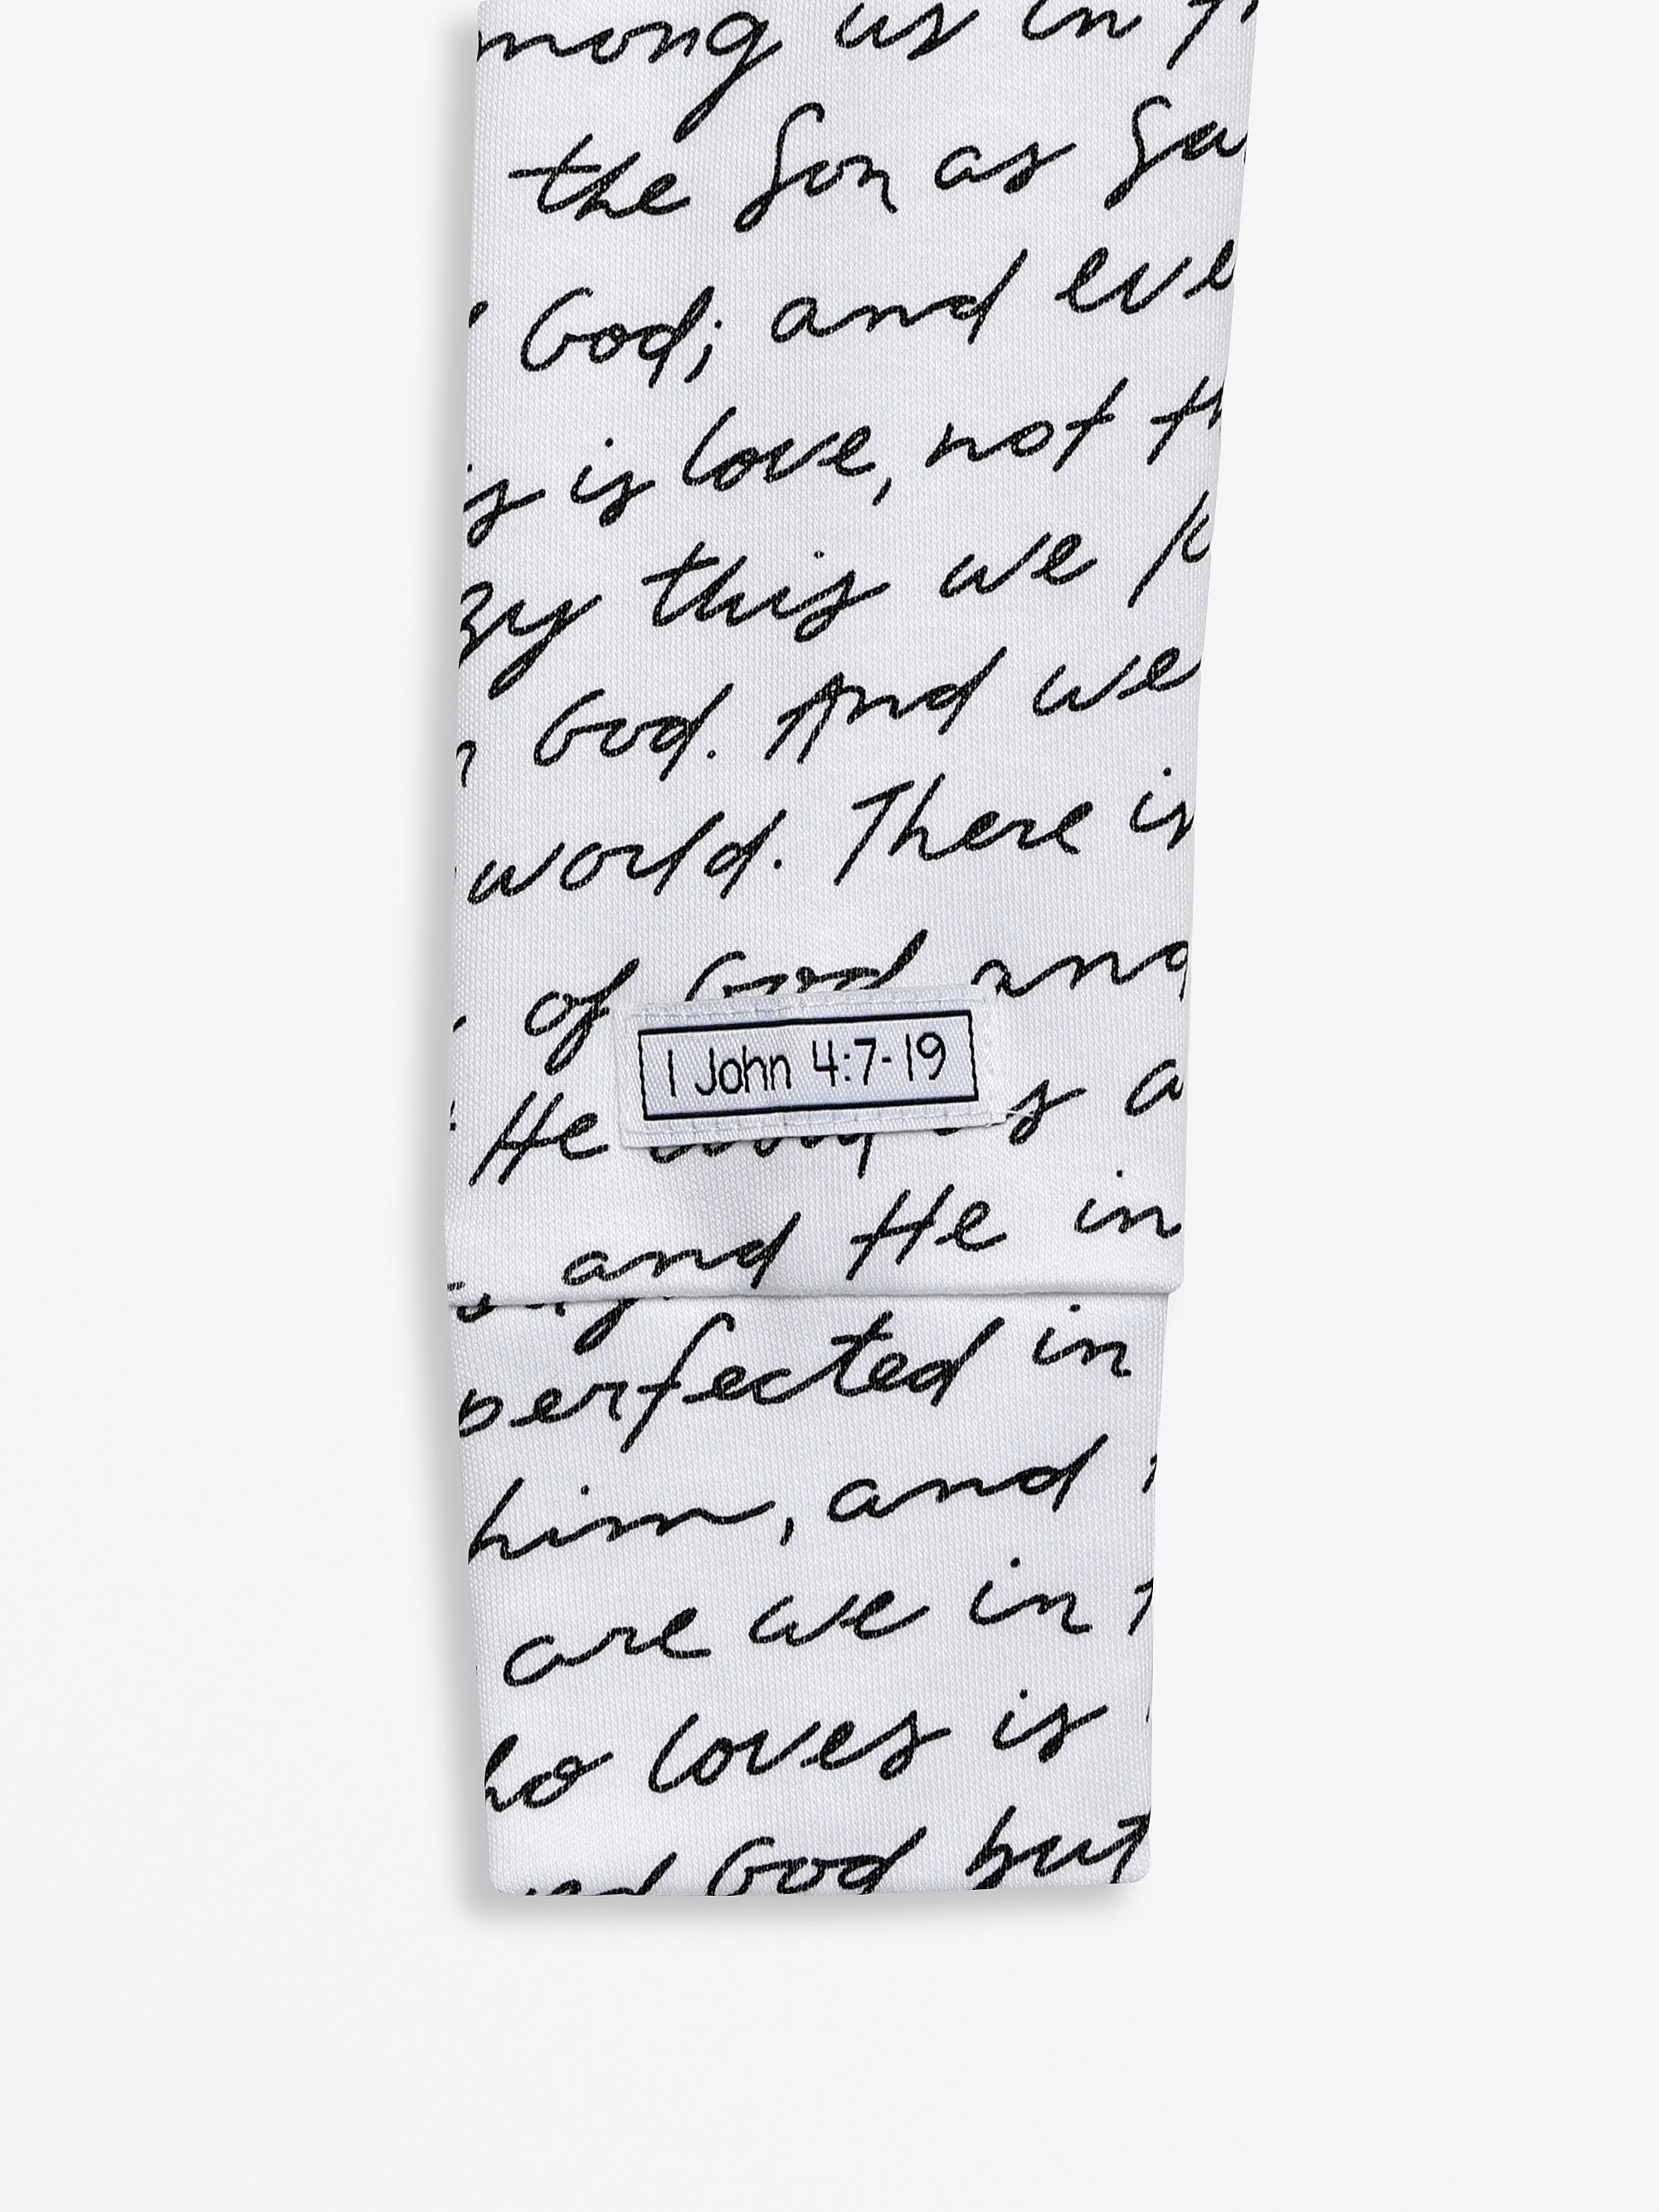 among us in
the Son as
God; and
is love, not
By this we
God. And we
world. There is
of God and
1 John 4:7-19
He a
and He in
perfected in
him, and
are we in
loves is
God but